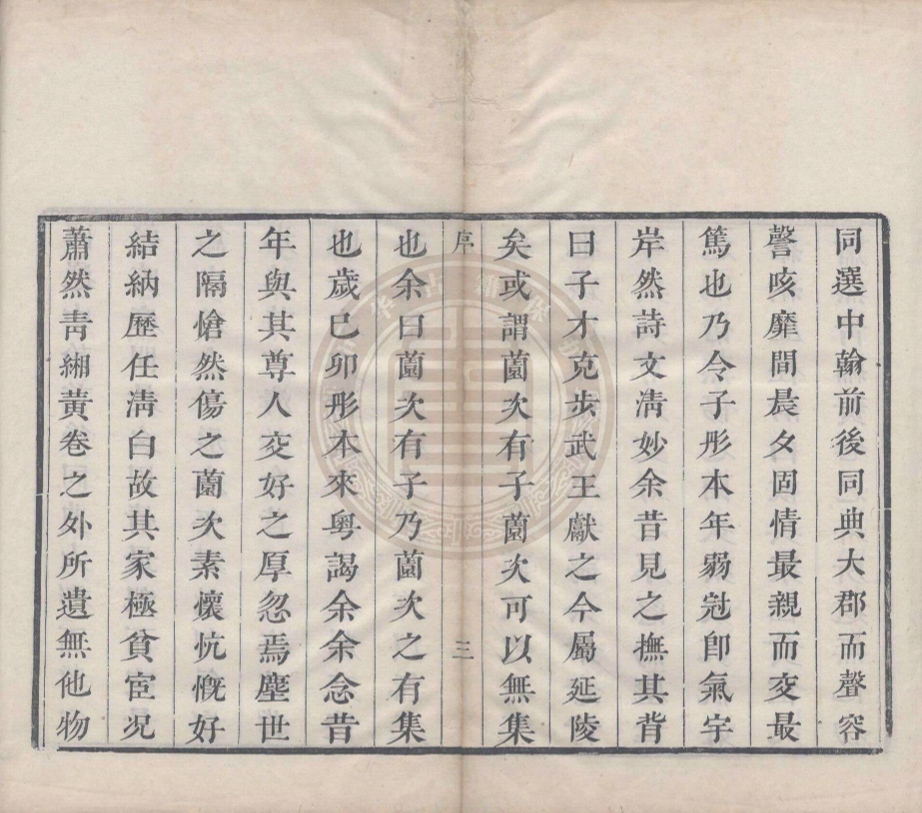 同選中翰前後同典大郡而聲容
謦咳靡間晨夕固情最親而交最
篤也乃令子彤本年弱冠卽氣宇
岸然詩文淸妙余昔見之撫其背
曰子才克步武王獻之今屬延陵
矣或謂薗次有子薗次可以無集
序 三
也余曰薗次有子乃薗次之有集
也歲已卯彤本來粤謁余余念昔
年與其尊人交好之厚忽焉塵世
之隔愴然傷之薗次素懷忼慨好
結納歷任淸白故其家極貧宦况
蕭然靑緗黃卷之外所遺無他物